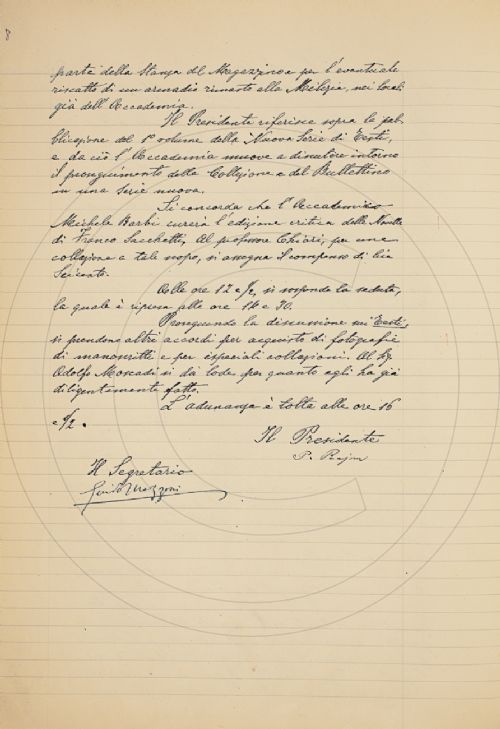 8
parte della Stanza del Magazzino e per l'eventuale
riscatto di un armadio rimasto alla Milizia, nei locali
già dell'Accademia.
Il Presidente riferisce sopra la pub-
blicazione del 1° volume della Nuova Serie di Testi,
e da ciò l'Accademia muove a discutere intorno
il proseguimento della Collezione e del Bullettino
in una serie nuova.
Si concorda che l'Accademico
Michele Barbi curerà l'edizione critica delle Novelle
di Franco Sacchetti. Al professore Chiari, per una
collazione a tal uopo, si assegna il compenso di lire
Seicento.
Alle ore 12 e 1/2, si sospende la seduta,
la quale è ripresa alle ore 14 e 30.
Proseguendo la discussione sui Testi,
si prendono altri accordi per acquisto di fotografie
di manoscritti e per speciali collazioni. Al Sig.
Adolfo Moscadi si dà lode per quanto egli ha già
diligentemente fatto.
L'adunanza è tolta alle ore 16
e 1/2.
Il Presidente
P. Rajna
Il Segretario
Guido Mazzoni